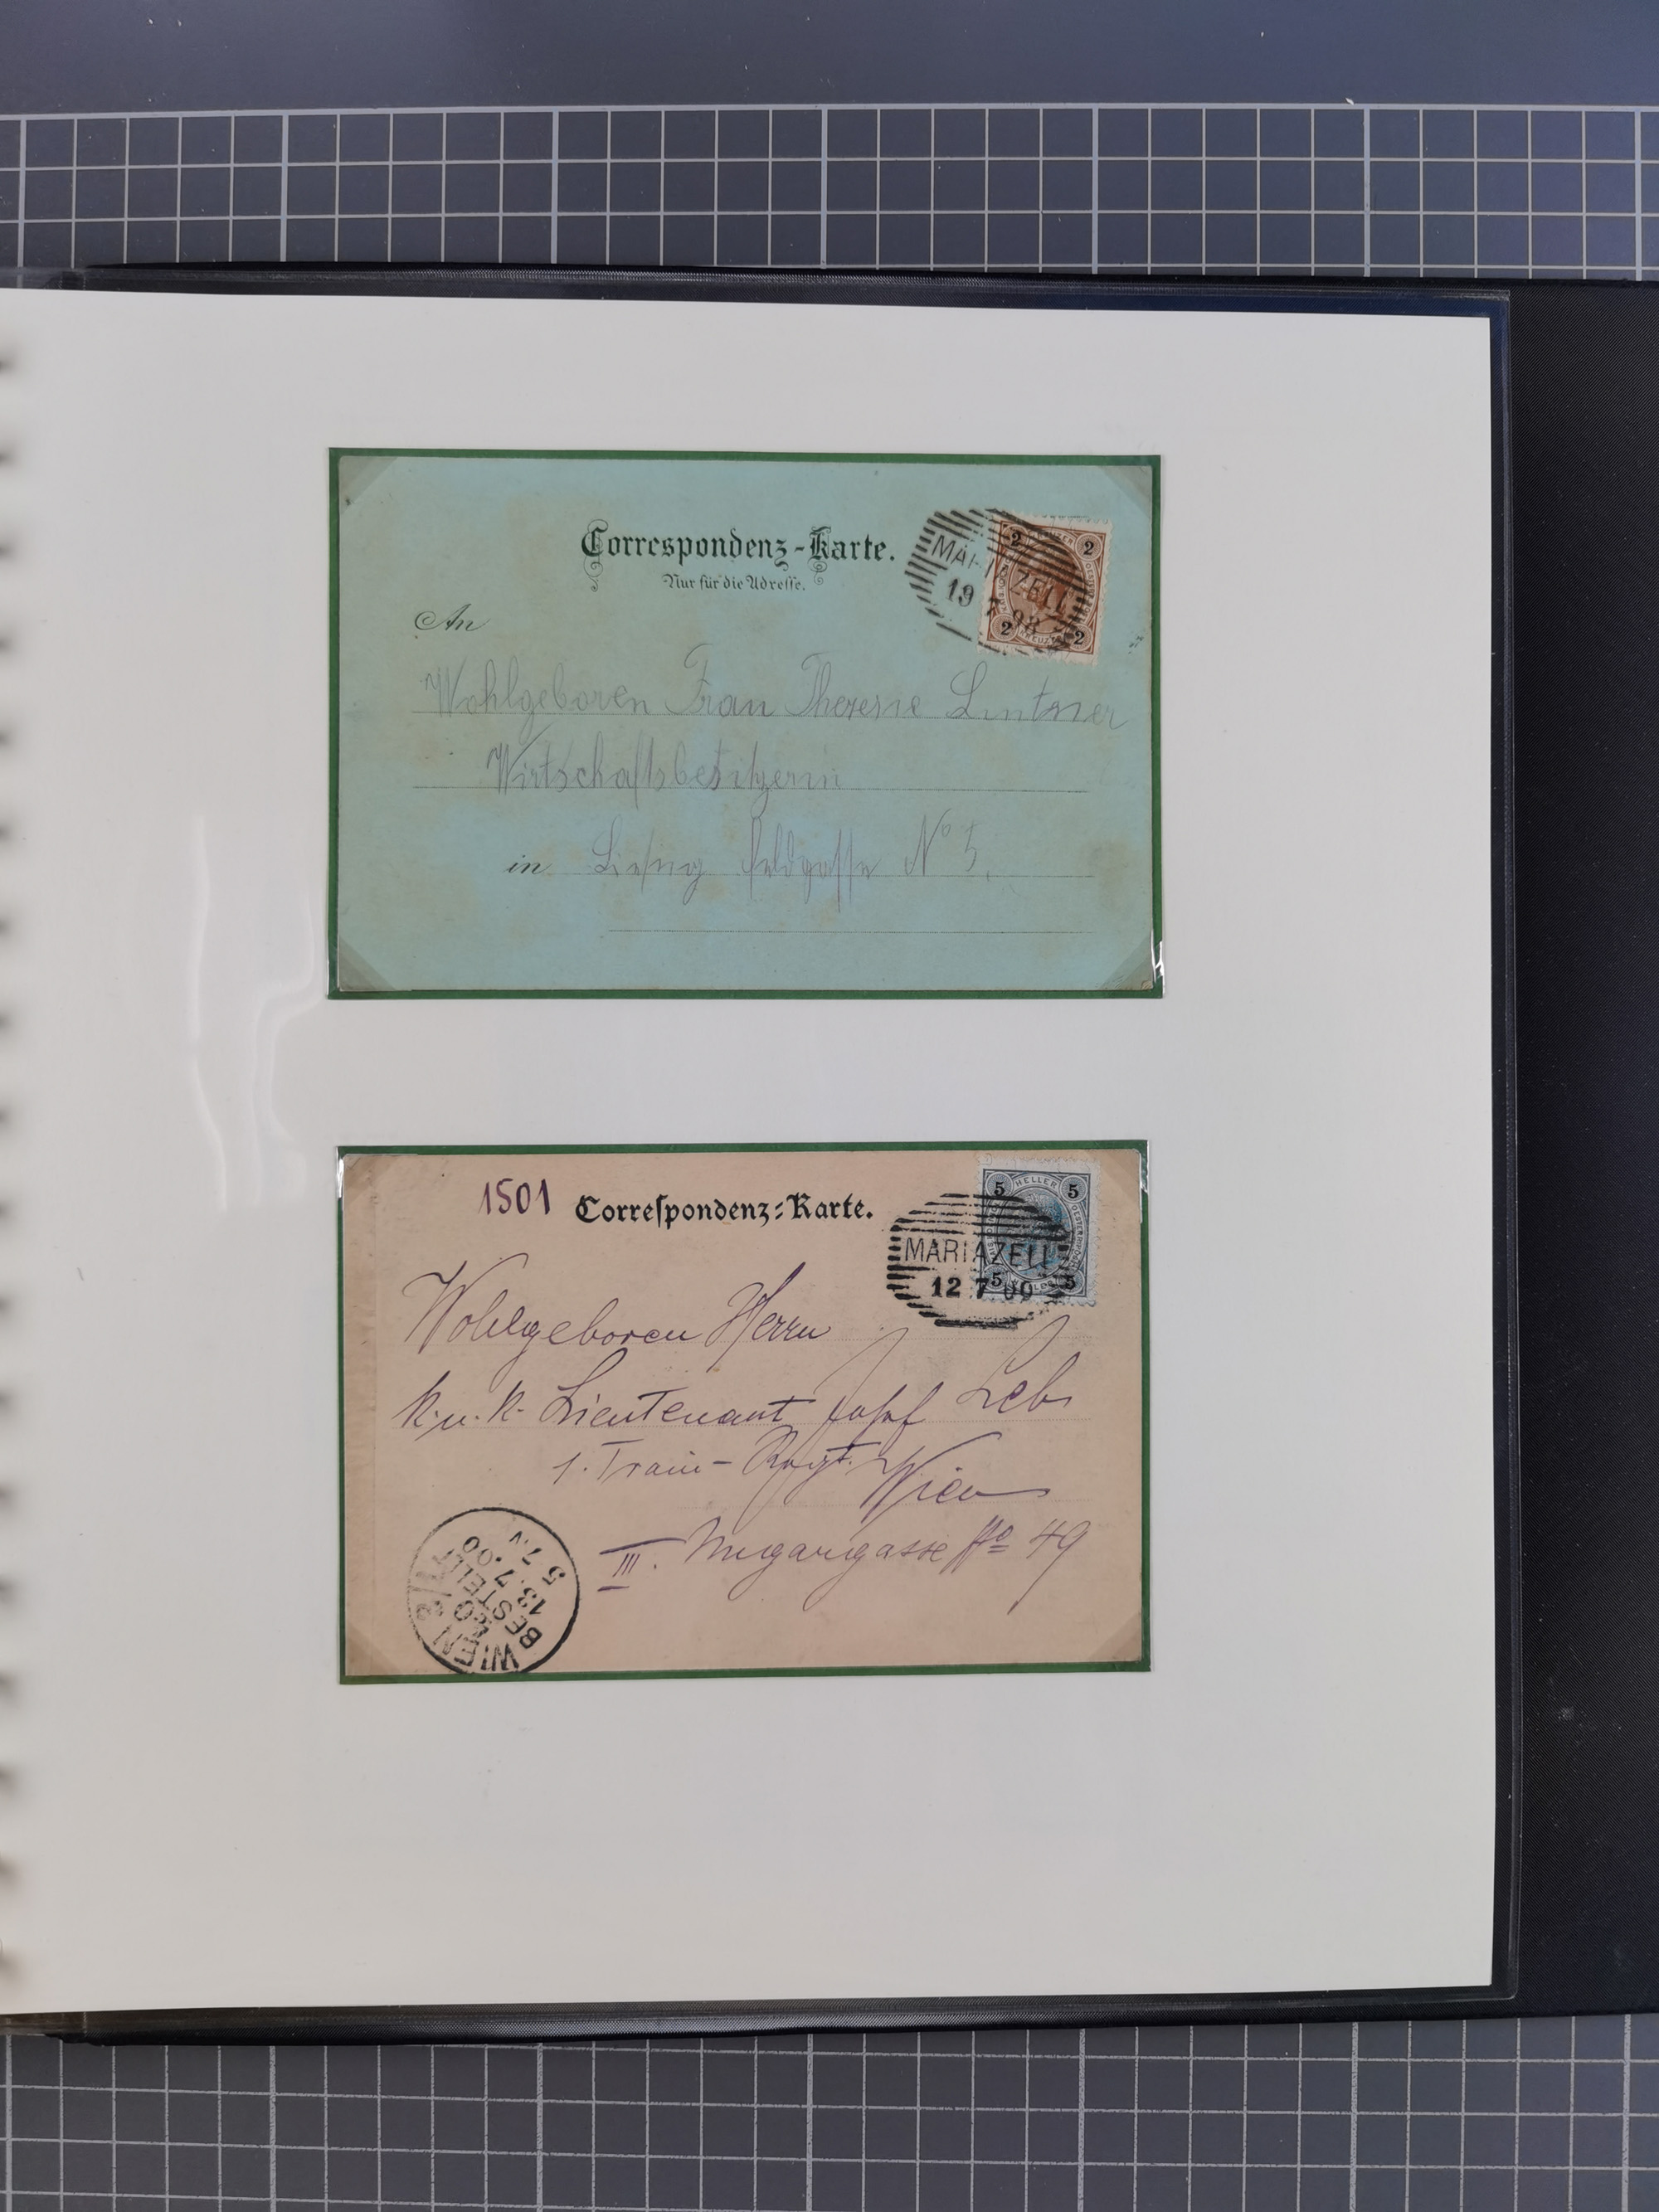 Correspondenz-Karte.
Nur für die Adresse.
MARIAZELL
19 7 98
2 2 2 2
An
Wohlgeboren Frau Theresie Lintner
Wirtschaftsbesitzerin
in Liesing Feldgasse No 5.
1501
Correspondenz-Karte.
5 HELLER 5
5 5
MARIAZELL
12 7 00
Wohlgeboren Herrn
k. u. k. Lieutenant Josef Leb
1. Train-Regt. Wien
III. Ungargasse No 49
WIEN
BESTELLT
13.7.00